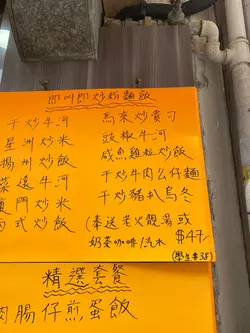 即叫即炒粉麵飯
干炒牛河
星洲炒米
揚州炒飯
菜遠牛河
廈門炒米
式炒飯
馬來炒貴刁
豉椒牛河
咸魚雞粒炒飯
干炒牛肉公仔麵
干炒豬扒烏冬
(奉送老火靚湯或
奶茶咖啡/汽水 $47
(學生$38)
精選套餐
肉腸仔煎蛋飯